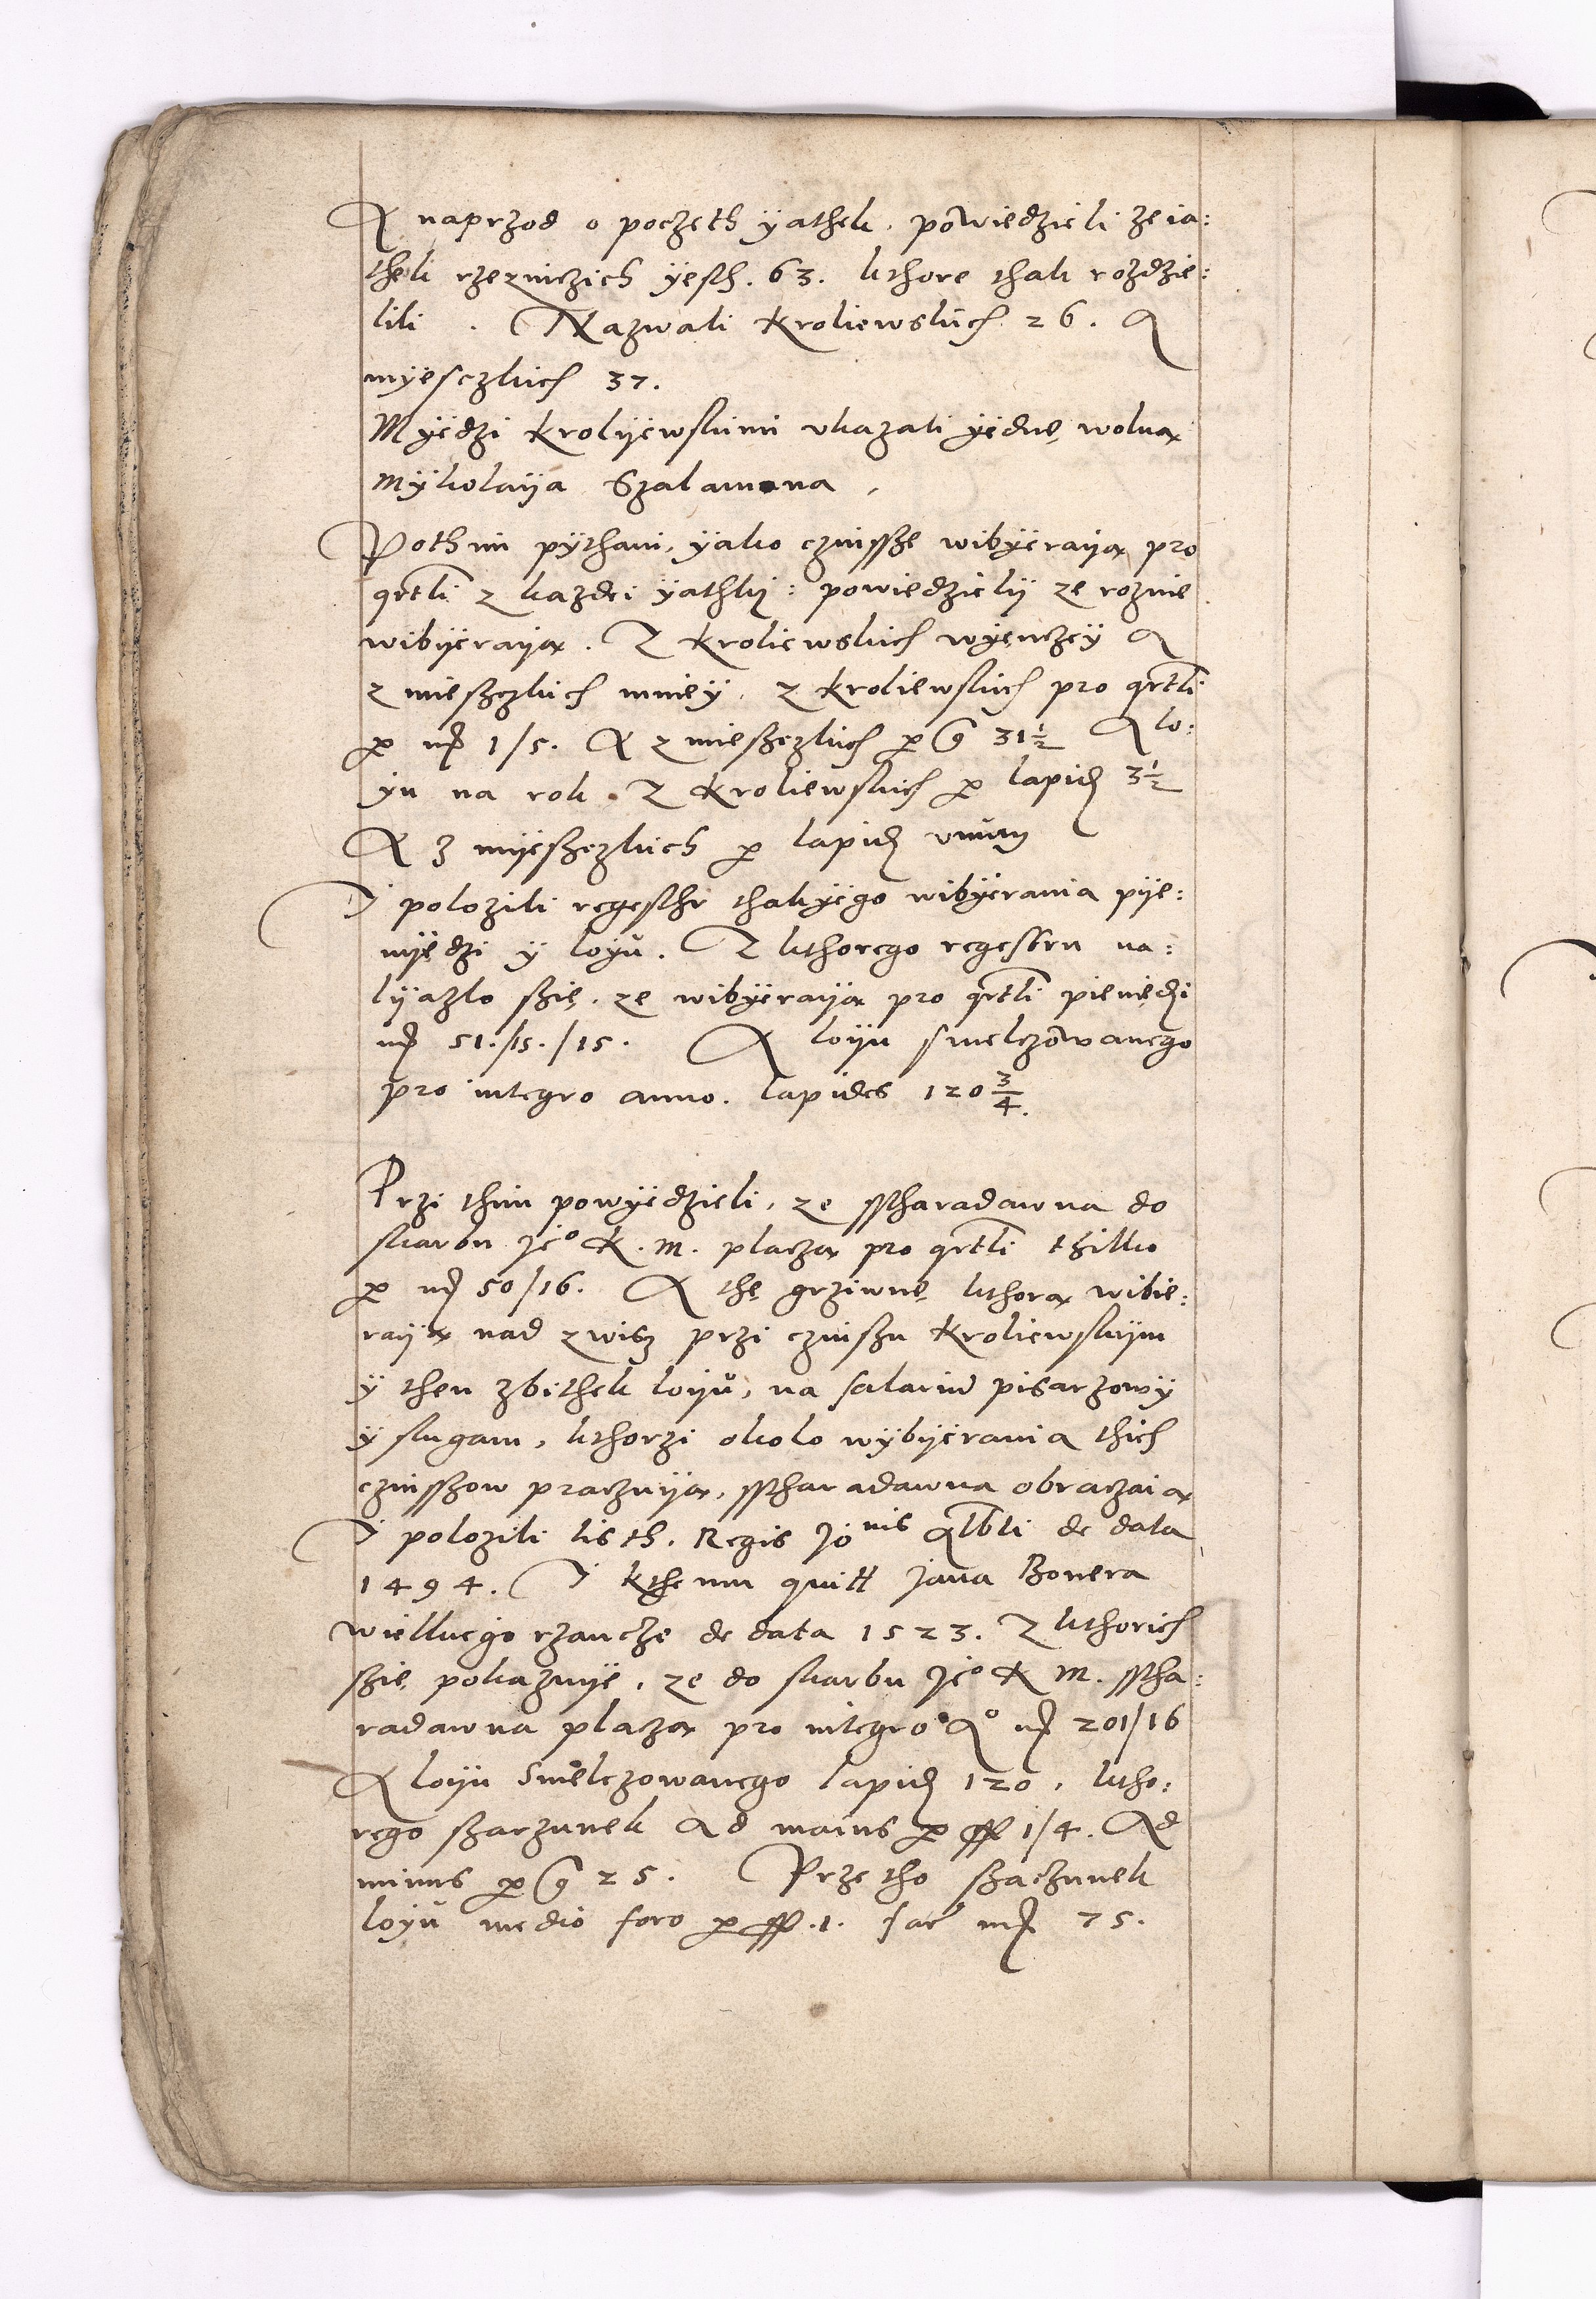 A naprzod o poczeth yathek. powiedzieli ze ia:
thek rzezniczich yesth. 63. kthore thak rozdzie:
lili. Nazwali Kroliewskich 26. A
myesczkich 37.
Myedzi Krolyewskimi vkazali yędnę wolną
Mykolaya Szalamona,
Pothim pythani, yako czinssze wibyeraya pro
qrtli z kazdei yathky: powiedziely ze roznie
wibyeraya. Z Kroliewskich wyenczey A
z mieszczkich mniey, z Kroliewskich pro qrtli
p mr 1/5. A z mieszczkich p g 31½ A lo:
yu na rok. Z Kroliewskich p lapid 3½
A z myeszczkich p lapid vnum
I polozili regesthr thakyego wibyerania pye:
nyędzi y loyu. Z kthorego regestru na:
lyazlo szię, ze wibyeraya pro qrtli pieniędzi
mr 51./15./15. A loyu smelczowanego
pro integro anno. lapides 120¾.
Przi thim powyedzieli, ze sstharadawna do
skarbu Jeo K. M. placza pro qrtli thilko
p mr 50/16. A thę grziwnę kthora wibie:
raya nad zwisz przi czinszu Kroliewskym
y then zbithek loyu, na salariu pisarzowy
y slugam, kthorzi okolo wybyerania thich
czinsszow praczuya, sstharadawna obraczaia
I polozili listh. Regis Jonis Albti de data
1494. I kthemu quitt Jana Bonera
wielkiego rzancze de data 1523. Z kthorich
szię pokazuye, ze do skarbu Jeo K M. sstha:
radawna placza pro integro Ao mr 201/16
A loyu Smelczowanego lapid 120, ktho:
rego szaczunek Ad maius p ff 1/4. Ad
minus p g 25. Prze tho szaczunek
loyu medio foro p ff .1. fac mr 75.